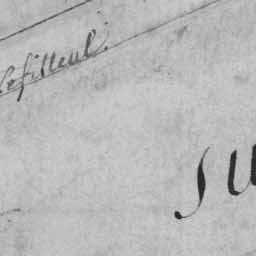 Lefilleul.
su